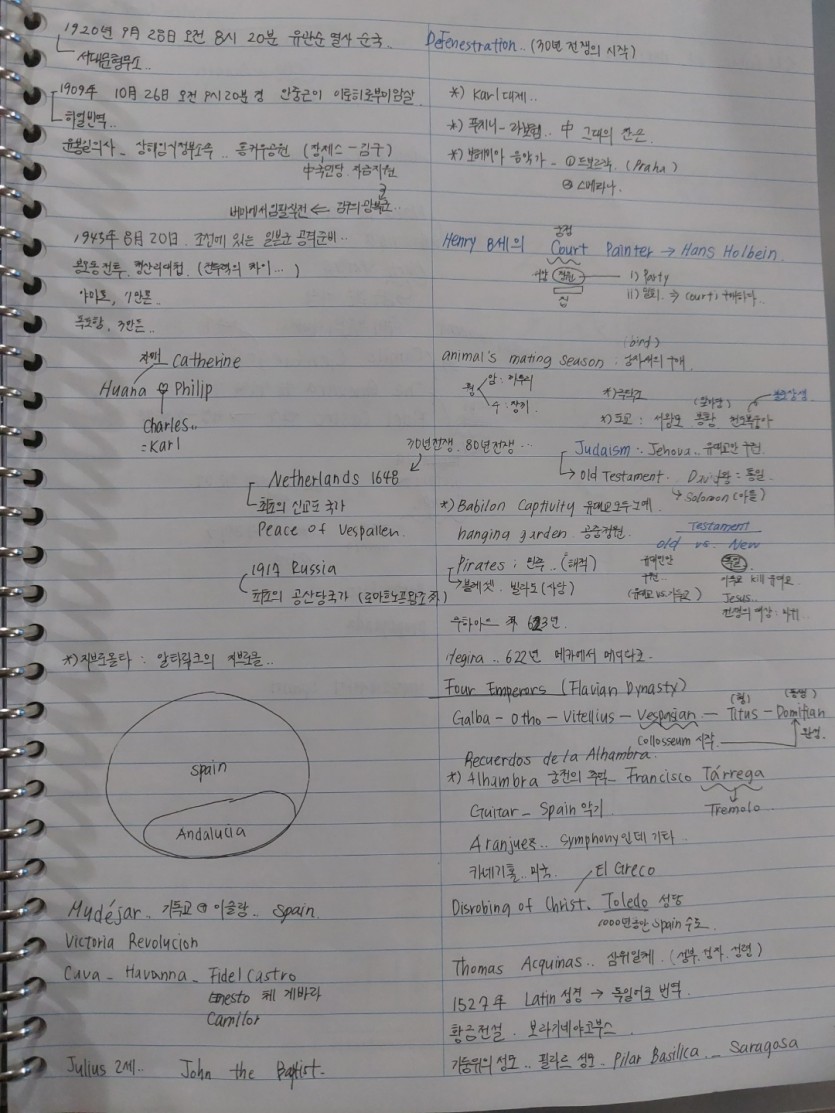 1920년 9월 28일 오전 8시 20분 유관순 열사 순국.
서대문형무소..
1909年 10月 26日 오전 9시 20분 경 안중근이 이토히로부미 암살
하얼빈역..
윤봉길의사 - 상해임시정부소속 .. 홍커우공원 (장제스 - 김구)
中국민당. 자금지원
버마에서 임팔작전 ⇐
1945年 8月 20日. 조선에 있는 일본군 공격준비..
봉오동전투. 청산리대첩. (전투력의 차이...)
야마토, 7만톤.
3만톤..
자매 Catherine
Huana Philip
Charles..
= Karl
30년전쟁. 80년전쟁 ...
Netherlands 1648
최초의 신교도 국가
Peace of Vespallen.
1917 Russia
최초의 공산당국가 (로마노프왕조 )
*) 지브롤타 : 알타리크의 지브롤..
spain
Andalucia
Mudéjar.. 기독교 이슬람.. Spain.
Victoria Revolucion
Cuva - Havanna - Fidel Castro
Ernesto 체 게바라
Camilor
Julius 2세.. John the Baptist.
Defenestration.. (30년 전쟁의 시작)
*) Karl 대제..
*) 푸치니 - 라보엠.. 中 그대의 찬손
*) 보헤미아 음악가 - ① 드보르작. (Praha)
② 스메타나.
궁정
Henry 8세의 Court Painter → Hans Holbein
정원 i) Party
집 ii) ⇒ Court; 구애하다..
(bird)
animal's mating season.
꿩 암: 까투리
수: 장끼
*) 도교 : 서왕모 봉황 천도복숭아
불로장생
Judaism.. Jehova.. 유대교만 구원
→ Old Testament. David왕 = 통일
→ Solomon (아들)
*) Babilon Captivity 유대교
hanging garden 공중정원
Testament
old vs. New
Pirates ; 민족.. (해적)
블레셋. 빌라도 (사람)
유대인만
구원..
(유대교 vs. 기독교)
kill 유대교
Jesus..
Hegira .. 622년 메카에서 메디나로.
Four Emperors (Flavian Dynasty)
Galba - Otho - Vitellius - Vespasian - Titus - Domitian
Collosseum 시작 완성
Recuerdos de la Alhambra.
*) Alhambra 궁전의 추억 - Francisco Tárrega
Guitar - Spain 악기
Tremolo
Aranjuez.. Symphony인데 기타..
카네기홀.. 미국.
El Greco
Disrobing of Christ. Toledo 성당
1000년간 Spain 수도
Thomas Acquinas .. 삼위일체. (성부. 성자. 성령)
1527年 Latin 성경 → 독일어로 번역.
황금전설. 보라기네 야고부스
기둥위의 성모.. 필라르 성모 - Pilar Basilica .. Saragosa